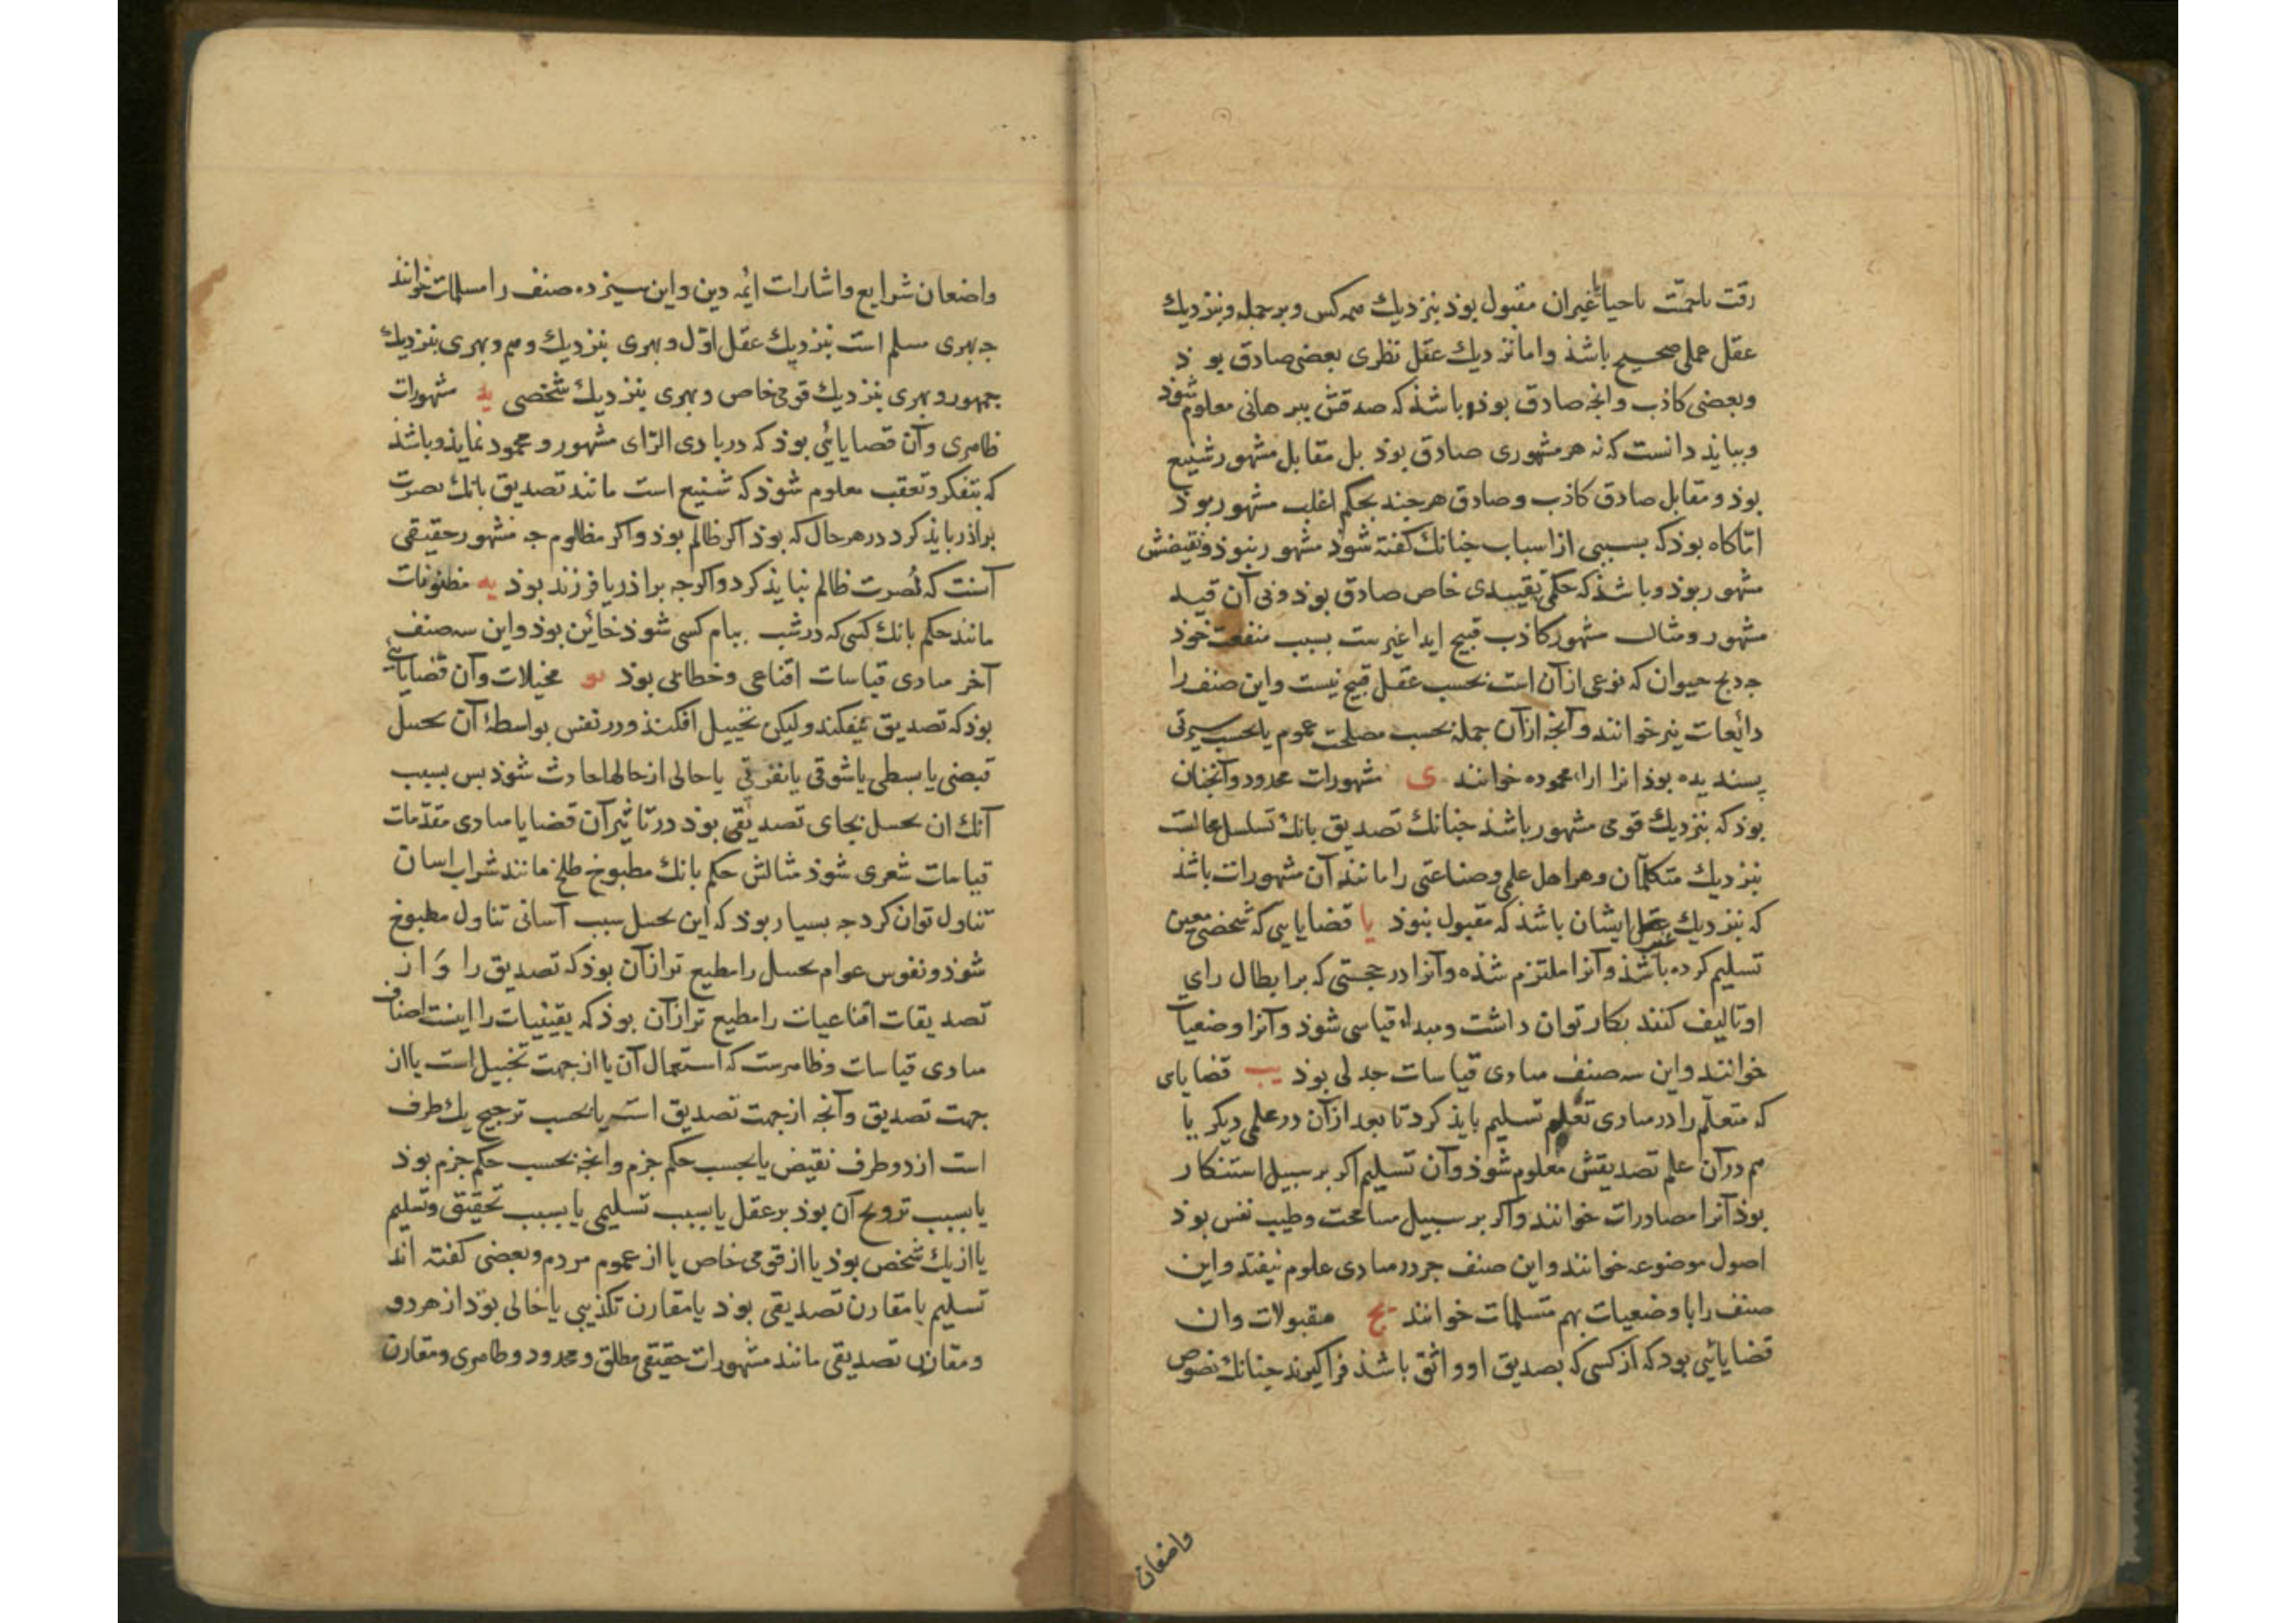 رقت یا حمیّت یا حیا یا غیر آن مقبول بوذ بنزدیك همه کس و بر جمله و بنزدیك
عقل عملی صحیح باشذ و اما نزدیك عقل نظری بعضی صادق بوذ
و بعضی کاذب و آنچه صادق بوذ باشذ که صدقش ببرهانی معلوم شوذ
و ببایذ دانست که نه هر مشهوری صادق بوذ بل مقابل مشهور شنیع
بوذ و مقابل صادق کاذب و صادق هر چند بحکم اغلب مشهور بوذ
اما گاه بوذ که بسببی از اسباب چنانك گفته شوذ مشهور نبوذ و نقیضش
مشهور بوذ و باشذ که حکمی بقیدی خاص صادق بوذ و بی آن قید
مشهور و مثال مشهور کاذب قبح ایذا غیرست بسبب منفعت خوذ
چه ذبح حیوان که نوعی از آن است بحسب عقل قبیح نیست و این صنف را
ذائعات نیز خوانند و آنچه از آن جمله بحسب مصلحت عموم یا بحسب سیرتی
پسندیده بوذ انرا اراء محموده خوانند ی مشهورات محدود و آنچنان
بوذ که بنزدیك قومی مشهور باشذ چنانك تصدیق بانك تسلسل محالست
بنزدیك متکلمان و هر اهل علمی و صناعتی را مانند آن مشهورات باشذ
که بنزدیك غیر ایشان باشذ که مقبول نبوذ یا قضایایی که شخصی معین
تسلیم کرده باشذ و آنرا ملتزم شذه و آنرا در حجتی که بر ابطال رای
او تالیف کنند بکار توان داشت و مبداء قیاسی شوذ و آنرا وضعیات
خوانند و این سه صنف مبادی قیاسات جدلی بوذ یب قضایای
که متعلّم را در مبادی تعلّم تسلیم بایذ کرد تا بعد از آن در علمی دیگر یا
هم در آن علم تصدیقش معلوم شوذ و آن تسلیم اگر بر سبیل استنکار
بوذ آنرا مصادرات خوانند و اگر بر سبیل مسامحت و طیب نفس بوذ
اصول موضوعه خوانند و این صنف جز در مبادی علوم نیفتد و این
صنف را با وضعیات بهم متسلمات خوانند یج مقبولات و ان
قضایائی بود که از کسی که بصدیق او واثق باشذ فرا گیرند چنانك نصوص
واضعان
واضعان شرایع و اشارات ائمه دین و این سیزده صنف را مسلمات خوانند
چه بهری مسلم است بنزدیك عقل اوّل و بهری بنزدیك وهم و بهری بنزدیك
جمهور و بهری بنزدیك قومی خاص و بهری بنزدیك شخصی ید مشهورات
ظاهری و آن قضایائی بوذ که در بادی الرّای مشهور و محمود نمایذ و باشذ
که بتفکر و تعقب معلوم شوذ که شنیع است مانند تصدیق بانك نصرت
براذر بایذ کرد در هر حال که بوذ اگر ظالم بوذ و اگر مظلوم چه مشهور حقیقی
آنست که نُصرت ظالم نبایذ کرد و اگر چه براذر یا فرزند بوذ یه مظنونات
مانند حکم بانك کسی که در شب ببام کسی شوذ خائن بوذ و این سه صنف
آخر مبادی قیاسات اقناعی و خطابی بوذ یو مخیلات و آن قضایایی
بوذ که تصدیق نیفکند و لیکن تخییل افکنذ و در نفس بواسطۀ آن تخییل
قبضی یا بسطی یا شوقی یا نفرتی یا حالی از حالها حادث شوذ پس بسبب
آنك ان تخییل بجای تصدیقی بوذ در تاثیر آن قضایا مبادی مقدّمات
قیاسات شعری شوذ مثالش حکم بانك مطبوخ طلخ مانند شراب اسان
تناول توان کرد چه بسیار بوذ که این تخییل سبب آسانی تناول مطبوخ
شوذ و نفوس عوام تخییل را مطیع تر از آن بوذ که تصدیق را وَ از
تصدیقات اقناعیات را مطیع تر از آن بوذ که یقینیات را اینست اصناف
مبادی قیاسات و ظاهرست که استعمال آن یا از جهت تخییل است یا از
جهت تصدیق و آنچه از جهت تصدیق است یا بحسب ترجیح یك طرف
است از دو طرف نقیض یا بحسب حکم جزم و انچه بحسب حکم جزم بوذ
یا بسبب ترویج آن بوذ بر عقل یا بسبب تسلیمی یا بسبب تحقیقی و تسلیم
یا از یك شخص بوذ یا از قومی خاص یا از عموم مردم و بعضی گفته اند
تسلیم یا مقارن تصدیقی بوذ یا مقارن تکذیبی یا خالی بوذ از هر دو
و مقارن تصدیقی مانند مشهورات حقیقی مطلق و محدود و ظاهری و مقارن